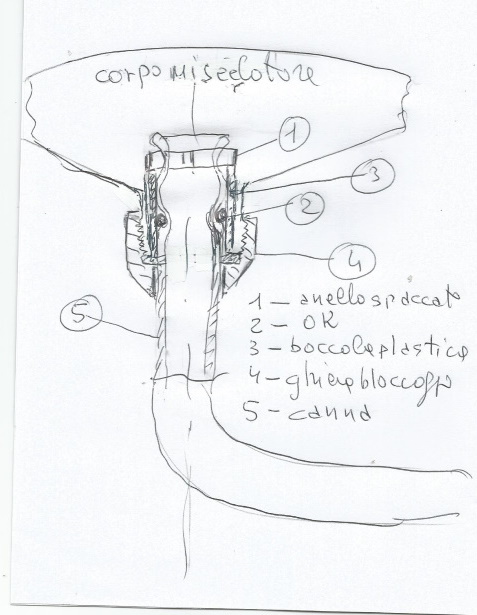 corpo miscelatore
1
3
2
4
5
1 - anello spaccato
2 - OR
3 - boccola plastica
4 - ghiera bloccagg
5 - canna